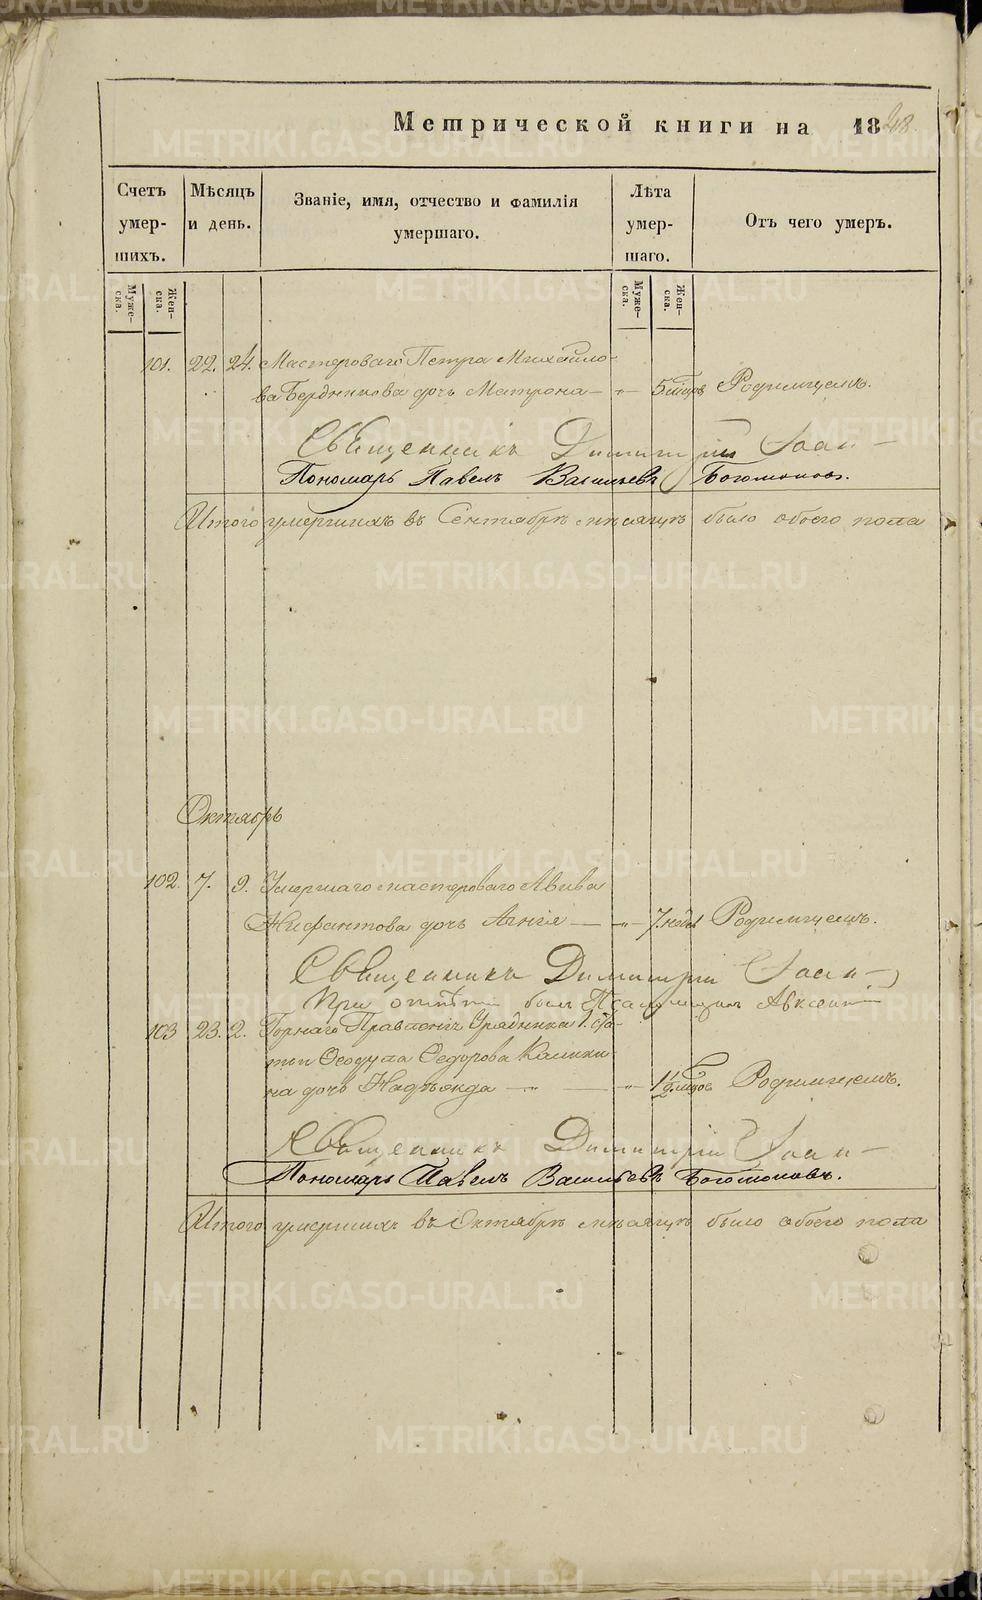 Метрической книги на 1848.
Счетъ умер-шихъ.
Мѣсяцъ и день.
Званіе, имя, отчество и фамилія умершаго.
Лѣта умер-шаго.
Отъ чего умеръ.
Муже-ска.
Жен-ска.
Муже-ска.
Жен-ска.
101. 22. 24. Мастероваго Петра Михайло-
ва Бердникова дочь Матрона — " — 5 мѣцов Родимцемъ.
Священникъ Димитрій
Пономарь Павелъ Васильевъ Богомоловъ.
Итого умершихъ въ Сентябрѣ мѣсяцѣ было обоего пола
Октябрь
102. 7. 9. Умершаго мастероваго Авива
Нифантова дочь Агнія — " — 7. нед. Родимцемъ.
Священникъ Димитрій
При отпѣтіи былъ Псаломщикъ Авксентій
103 23. 2. Горнаго Правленія Урядника 1. ста-
тьи Ѳеодула Ѳедорова Калини-
на дочь Надѣжда — " — " — 1½ мѣцов Родимцемъ.
Священникъ Димитрій
Пономарь Павелъ Васильевъ Богомоловъ.
Итого умершихъ въ Октябрѣ мѣсяцѣ было обоего пола
METRIKI.GASO-URAL.RU